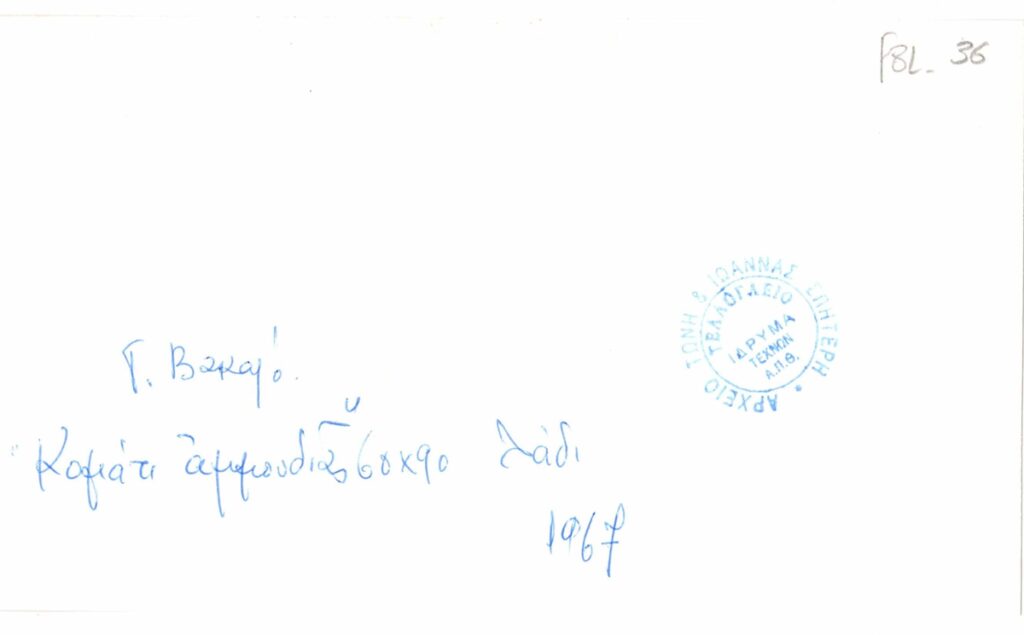 F8L. 36
ΑΡΧΕΙΟ ΤΩΝΗ & ΙΩΑΝΝΑΣ ΣΠΗΤΕΡΗ •
ΤΕΛΛΟΓΛΕΙΟ
ΙΔΡΥΜΑ
ΤΕΧΝΩΝ
Α.Π.Θ.
Γ. Βακαλό.
"Κομάτι ἀμμουδιᾶς" 60x90 λάδι
1967